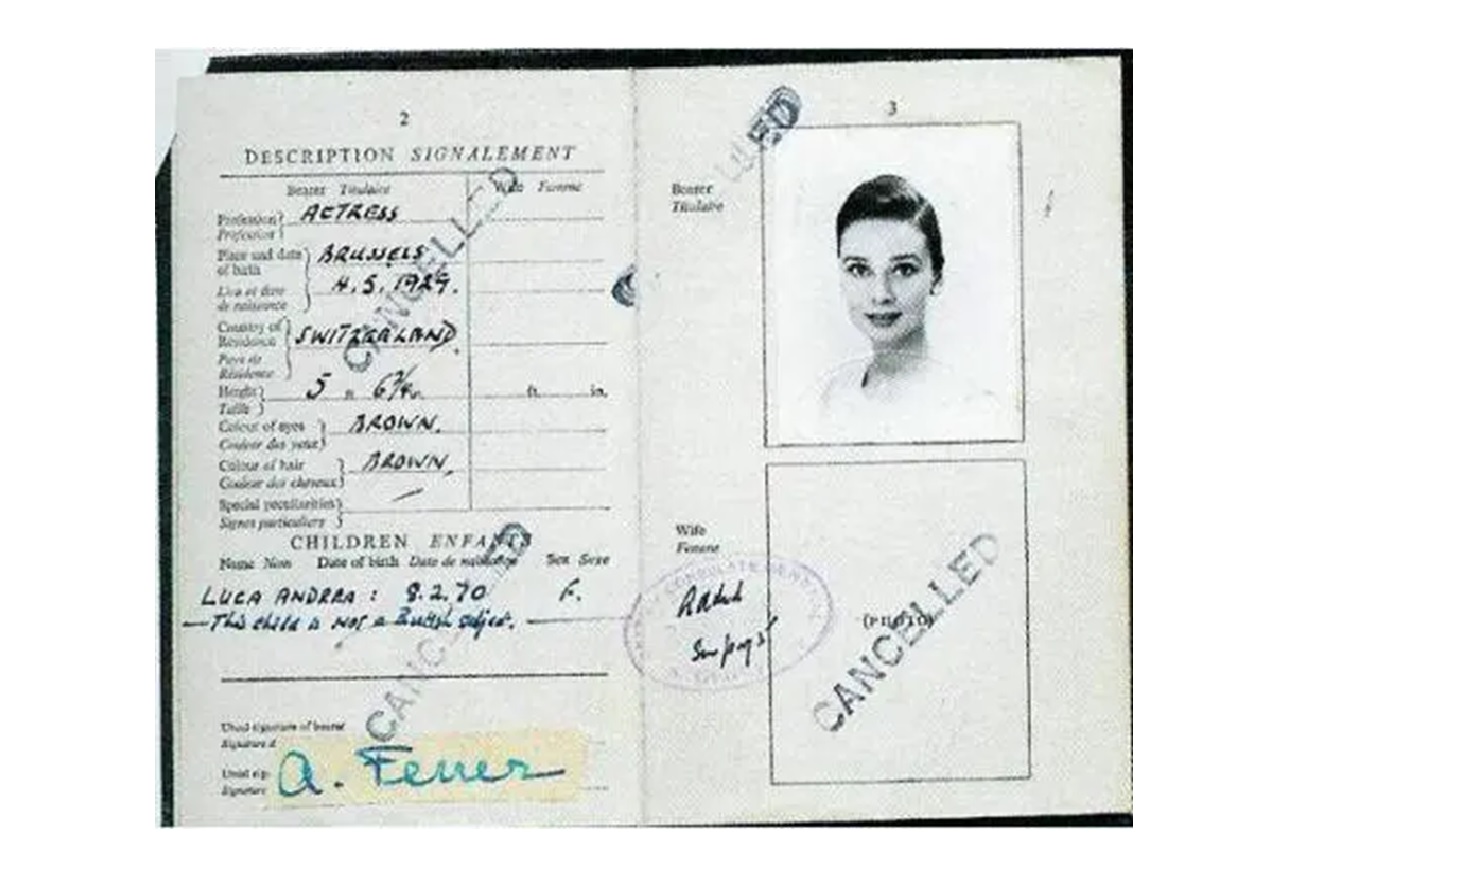 2
DESCRIPTION SIGNALEMENT
Bearer Titulaire Wife Femme
Profession ACTRESS
Profession
Place and date BRUSSELS
of birth 4.5.1929.
Lieu et date
de naissance
Country of SWITZERLAND
Residence
Pays de
Résidence
Height 5 6¾ in. ft. in.
Taille
Colour of eyes BROWN.
Couleur des yeux
Colour of hair BROWN.
Couleur des cheveux
Special peculiarities —
Signes particuliers
CHILDREN ENFANTS
Name Nom Date of birth Date de naissance Sex Sexe
LUCA ANDREA : 8.2.70
This child is not a British subject.
Usual signature of bearer
Signature d
A. Ferrer
Usual sig
Signature
CANCELLED
CANCELLED
3
Bearer
Titulaire
Wife
Femme
(PHOTO)
CANCELLED